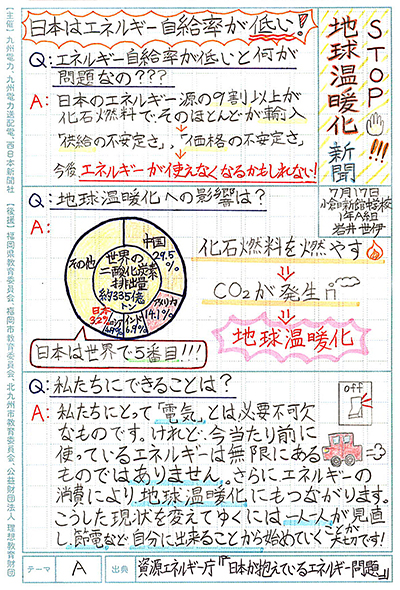 日本はエネルギー自給率が低い!
STOP
地球温暖化
新聞
7月17日
1年A組
岩井 世伊
Q:エネルギー自給率が低いと何が
問題なの???
A:日本のエネルギー源の9割以上が
化石燃料で、そのほとんどが輸入
「供給の不安定さ」、「価格の不安定さ」
今後、エネルギーが使えなくなるかもしれない!
Q:地球温暖化への影響は?
A:
世界の
二酸化炭素
排出量
約335億
トン
中国
29.5
%
アメリカ
14.1%
インド
6.9%
日本
3.2%
その他
日本は世界で5番目!!!
化石燃料を燃やす
CO2が発生
地球温暖化
Q:私たちにできることは?
A:私たちにとって「電気」とは必要不可欠
なものです。けれど、今当たり前に
使っているエネルギーは無限にある
ものではありません。さらにエネルギーの
消費により、地球温暖化にもつながります。
こうした現状を変えてゆくには、一人一人が見直
し、節電など自分に出来ることから始めていくことが
大切です!
off
テーマ
A
出典
資源エネルギー庁『「日本が抱えているエネルギー問題」』
【主催】九州電力、九州電力送配電、西日本新聞社 【後援】福岡県教育委員会、福岡市教育委員会、北九州市教育委員会、公益財団法人 理想教育財団